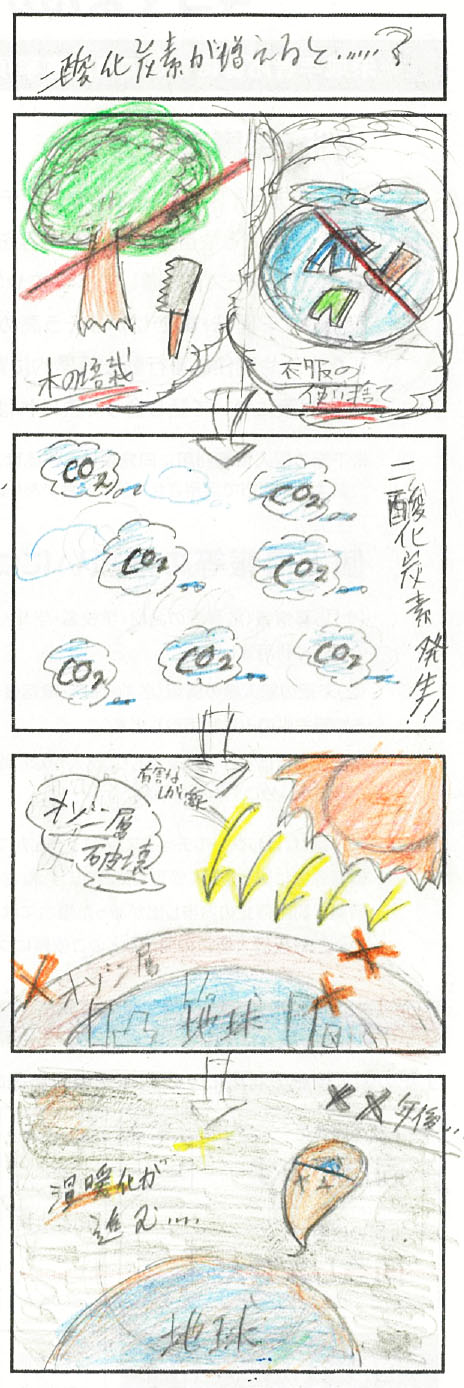 二酸化炭素が増えると……?
木の培栽
衣服の
使い捨て
CO2
CO2
CO2
CO2
CO2
CO2
CO2
二酸化炭素発生!!
オゾン層
破壊
有害な
オゾン層
地球
××年後…
温暖化が
進む……
地球